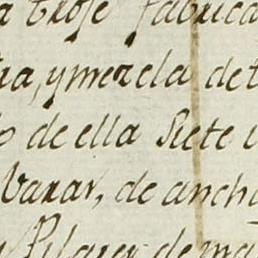 a troje fabrica
ra, y mezcla de t
o de ella siete v
Varas, de anch
y Pilares de ma